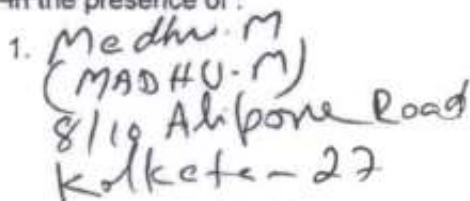 in the presence of :
1. Madhu. M
(MADHU-M)
8/10 Alipore Road
Kolkata - 27